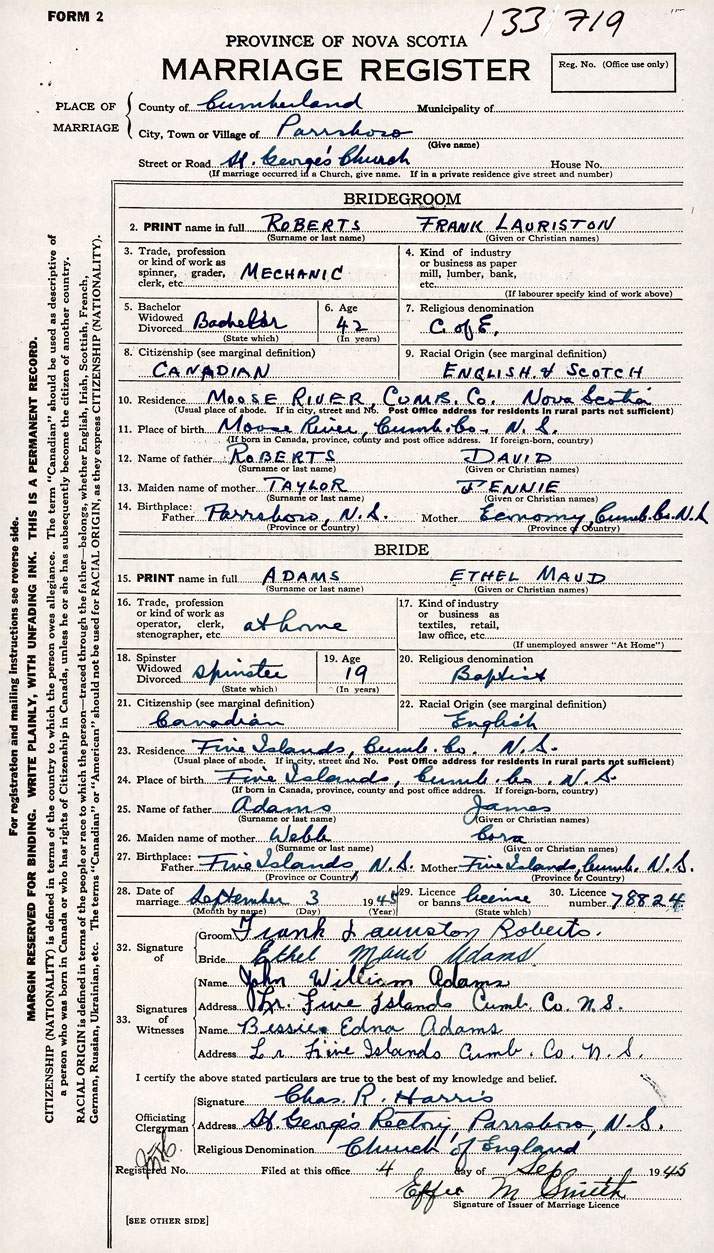 FORM 2
133 719
PROVINCE OF NOVA SCOTIA
MARRIAGE REGISTER
Reg. No. (Office use only)
PLACE OF MARRIAGE
County of Cumberland Municipality of
City, Town or Village of Parrsboro
(Give name)
Street or Road St. George's Church House No.
(If marriage occurred in a Church, give name. If in a private residence give street and number)
BRIDEGROOM
2. PRINT name in full ROBERTS FRANK LAURISTON
(Surname or last name) (Given or Christian names)
3. Trade, profession or kind of work as spinner, grader, clerk, etc. MECHANIC
4. Kind of industry or business as paper mill, lumber, bank, etc.
(If labourer specify kind of work above)
5. Bachelor Widowed Divorced Bachelor (State which)
6. Age 42 (In years)
7. Religious denomination C. of E.
8. Citizenship (see marginal definition) CANADIAN
9. Racial Origin (see marginal definition) ENGLISH & SCOTCH
10. Residence MOOSE RIVER, CUMB. CO. NOVA SCOTIA
(Usual place of abode. If in city, street and No. Post Office address for residents in rural parts not sufficient)
11. Place of birth Moose River, Cumb. Co. N. S.
(If born in Canada, province, county and post office address. If foreign-born, country)
12. Name of father ROBERTS DAVID
(Surname or last name) (Given or Christian names)
13. Maiden name of mother TAYLOR JENNIE
(Surname or last name) (Given or Christian names)
14. Birthplace: Father Parrsboro, N.S. Mother Economy, Cumb. Co. N.S
(Province or Country) (Province or Country)
BRIDE
15. PRINT name in full ADAMS ETHEL MAUD
(Surname or last name) (Given or Christian names)
16. Trade, profession or kind of work as operator, clerk, stenographer, etc. at home
17. Kind of industry or business as textiles, retail, law office, etc.
(If unemployed answer "At Home")
18. Spinster Widowed Divorced Spinster (State which)
19. Age 19 (In years)
20. Religious denomination Baptist
21. Citizenship (see marginal definition) Canadian
22. Racial Origin (see marginal definition) English
23. Residence Five Islands, Cumb. Co. N.S.
(Usual place of abode. If in city, street and No. Post Office address for residents in rural parts not sufficient)
24. Place of birth Five Islands, Cumb. Co. N.S.
(If born in Canada, province, county and post office address. If foreign-born, country)
25. Name of father Adams James
(Surname or last name) (Given or Christian names)
26. Maiden name of mother Webb Cora
(Surname or last name) (Given or Christian names)
27. Birthplace: Father Five Islands, N.S. Mother Five Islands, Cumb. N.S.
(Province or Country) (Province or Country)
28. Date of marriage September 3 1945
(Month by name) (Day) (Year)
29. Licence or banns license (State which)
30. Licence number 78824
32. Signature of
Groom Frank Lauriston Roberts.
Bride Ethel Maud Adams
33. Signatures of Witnesses
Name John William Adams
Address Lr. Five Islands Cumb. Co. N.S.
Name Bessie Edna Adams
Address Lr Five Islands Cumb. Co. N. S.
I certify the above stated particulars are true to the best of my knowledge and belief.
Officiating Clergyman
Signature Chas. R. Harris
Address St. George's Rectory, Parrsboro, N.S.
Religious Denomination Church of England
Registered No. Filed at this office 4 day of Sep 1945
Effie M Smith
Signature of Issuer of Marriage Licence
[SEE OTHER SIDE]
For registration and mailing instructions see reverse side.
MARGIN RESERVED FOR BINDING. WRITE PLAINLY, WITH UNFADING INK. THIS IS A PERMANENT RECORD.
CITIZENSHIP (NATIONALITY) is defined in terms of the country to which the person owes allegiance. The term "Canadian" should be used as descriptive of
a person who was born in Canada or who has rights of Citizenship in Canada, unless he or she has subsequently become the citizen of another country.
RACIAL ORIGIN is defined in terms of the people or race to which the person—traced through the father—belongs, whether English, Irish, Scottish, French,
German, Russian, Ukrainian, etc. The terms "Canadian" or "American" should not be used for RACIAL ORIGIN, as they express CITIZENSHIP (NATIONALITY).